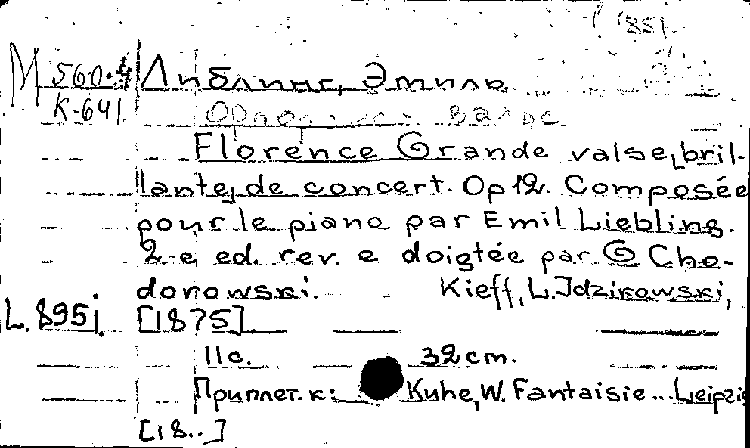 1851
М 560.4 Либлинг, Эмиль
К-641
вальс
Florence Grande valse, bril-
lante, de concert. Op 12. Composée
pour le piano par Emil Liebling.
2-e ed. rev. e doigtée par G Cho-
dorowski. Kieff, L. Idzikowski,
L. 895i [1875]
11c. 32cm.
Приплет. к: Kuhe, W. Fantaisie... Leipzig
[18..]